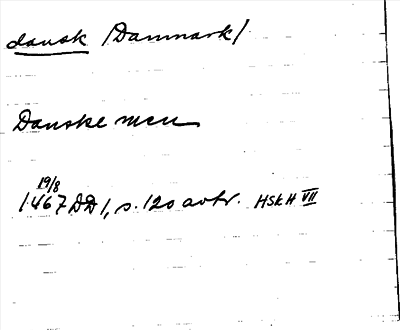 dansk /Danmark/
Danske men
19/8
1467 DD 1, s. 120 avtr. HSH VII